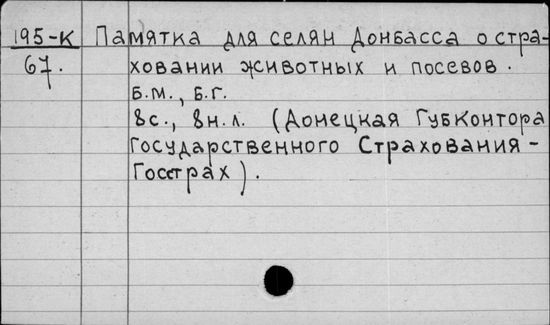 195-К Памятка для селян Донбасса о стра-
67. ховании животных и посевов.
Б.м., Б.г.
8с., 8н.л. (Донецкая Губконтора
Государственного Страхования-
Госстрах).